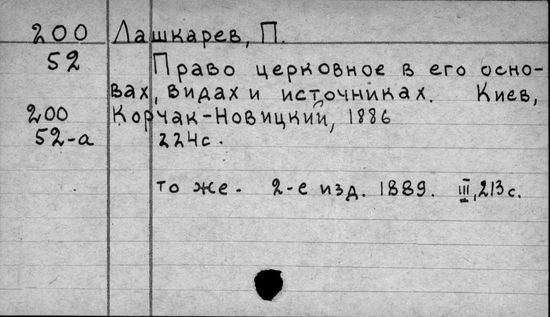 200 Лашкарев, П.
52 Право церковное в его осно-
вах, видах и источниках. Киев,
200 Корчак-Новицкий, 1886
52-а 224с.
то же. 2-е изд. 1889. III, 213с.